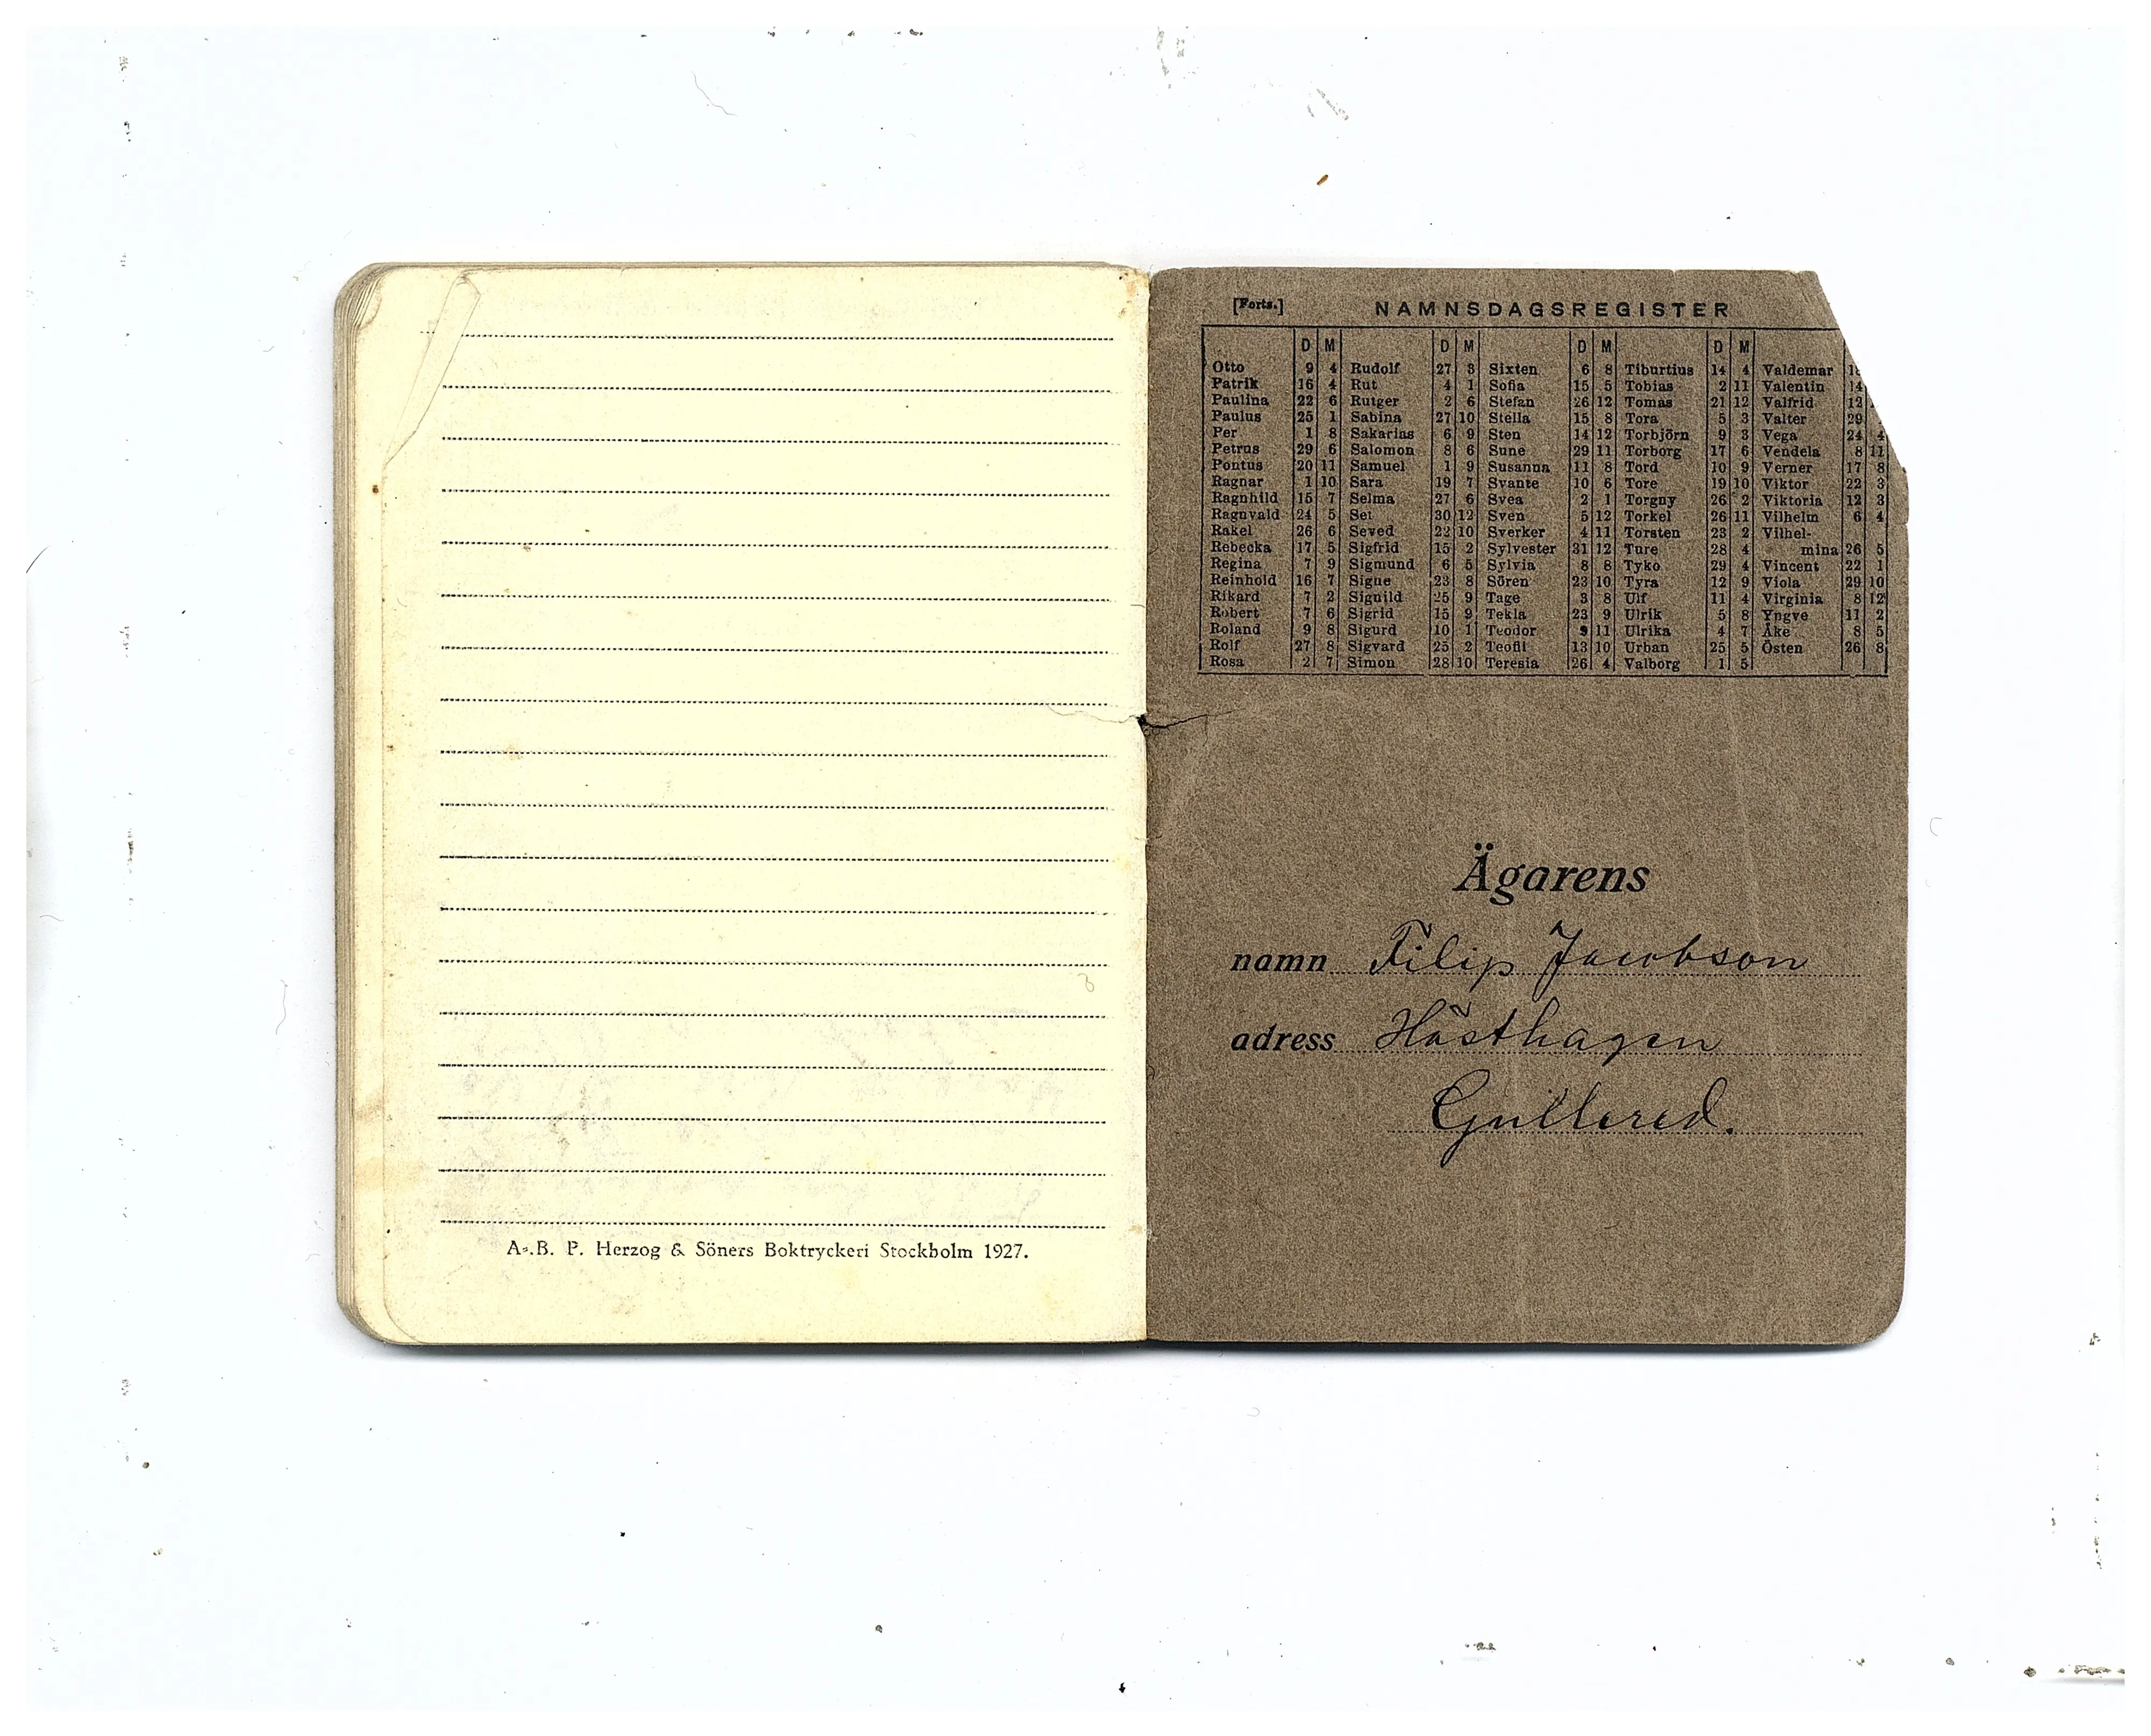 A.-B. P. Herzog & Söners Boktryckeri Stockholm 1927.
[Forts.] NAMNSDAGSREGISTER
D M D M D M D M
Otto 9 4 Rudolf 27 3 Sixten 6 8 Tiburtius 14 4 Valdemar
Patrik 16 4 Rut 4 1 Sofia 15 5 Tobias 2 11 Valentin 14
Paulina 22 6 Rutger 2 6 Stefan 26 12 Tomas 21 12 Valfrid 12
Paulus 25 1 Sabina 27 10 Stella 15 8 Tora 5 3 Valter 29
Per 1 8 Sakarias 6 9 Sten 14 12 Torbjörn 9 3 Vega 24 4
Petrus 29 6 Salomon 8 6 Sune 29 11 Torborg 17 6 Vendela 8 11
Pontus 20 11 Samuel 1 9 Susanna 11 8 Tord 10 9 Verner 17 8
Ragnar 1 10 Sara 19 7 Svante 10 6 Tore 19 10 Viktor 22 3
Ragnhild 15 7 Selma 27 6 Svea 2 1 Torgny 26 2 Viktoria 12 3
Ragnvald 24 5 Set 30 12 Sven 5 12 Torkel 26 11 Vilhelm 6 4
Rakel 26 6 Seved 22 10 Sverker 4 11 Torsten 23 2 Vilhel-
Rebecka 17 5 Sigfrid 15 2 Sylvester 31 12 Ture 28 4 mina 26 5
Regina 7 9 Sigmund 6 5 Sylvia 8 8 Tyko 29 4 Vincent 22 1
Reinhold 16 7 Signe 23 8 Sören 23 10 Tyra 12 9 Viola 29 10
Rikard 7 2 Signild 25 9 Tage 3 8 Ulf 11 4 Virginia 8 12
Robert 7 6 Sigrid 15 9 Tekla 23 9 Ulrik 5 8 Yngve 11 2
Roland 9 8 Sigurd 10 1 Teodor 9 11 Ulrika 4 7 Åke 8 5
Rolf 27 8 Sigvard 25 2 Teofil 13 10 Urban 25 5 Östen 26 8
Rosa 2 7 Simon 28 10 Teresia 26 4 Valborg 1 5
Ägarens
namn Filip Jacobson
adress Hästhagen
Gullered.